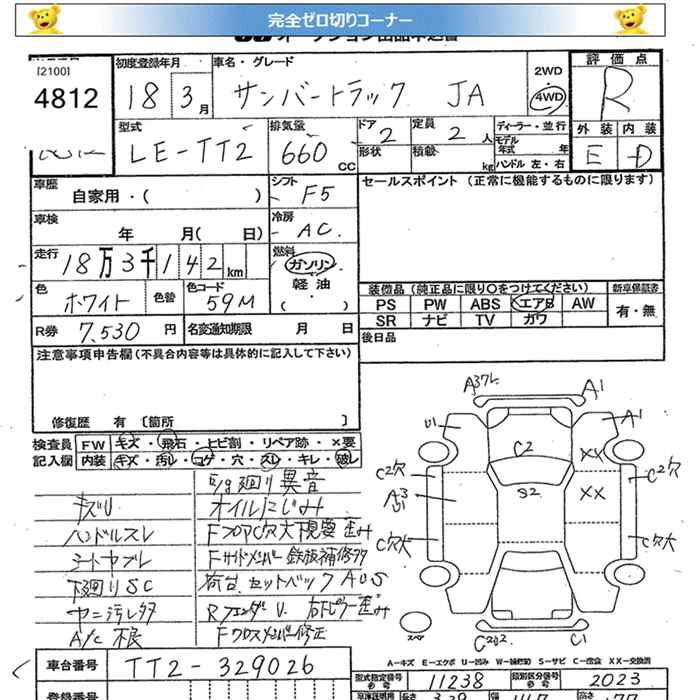 完全ゼロ切りコーナー
[2100]
4812
初度登録年月 車名・グレード 2WD 4WD 評価点
18 3月 サンバートラック JA R
型式 排気量 ドア 定員 ディーラー・並行 外装 内装
LE-TT2 660 CC 2 2人 モデル年式 年 E D
形状 積載 kg ハンドル 左・右
車歴 自家用・( ) シフト F5 セールスポイント (正常に機能するものに限ります)
車検 年 月( 日) 冷房 AC
走行 18万3千142km 燃料 ガソリン 軽油 ( ・ )
色 ホワイト 色替 色コード 59M
装備品(純正品に限り○をつけてください) 新車保証書
PS PW ABS エアB AW 有・無
SR ナビ TV ガワ
R券 7,530円 名変通知期限 月 日 後日品
注意事項申告欄(不具合内容等は具体的に記入して下さい)
修復歴 有 〔箇所 〕
検査員 FW キズ・飛石・ヒビ割・リペア跡・×要
記入欄 内装 キズ・汚レ・コゲ・穴・スレ・キレ・破レ
E/g廻り異音
キズU オイルにじみ
ハンドルスレ FフロアC穴大視要歪み
シートヤブレ Fサイドメンバー鉄板補修多
下廻りSC 荷台セットバックAUS
ヤニ汚レ多 RフェンダU. 右Fピラー歪み
A/C不良 Fクロスメンバー修正
A3フレ A1
U1 A1
C2 XX
C2穴 A3 U1 S2 XX C2穴
C穴大 C穴大
スペア C2U2 C1
A-キズ E-エクボ U-凹み W-補修跡 S-サビ C-腐食 XX-交換済
車台番号 TT2-329026
型式指定番号 11238 類別区分番号 2023
登録番号